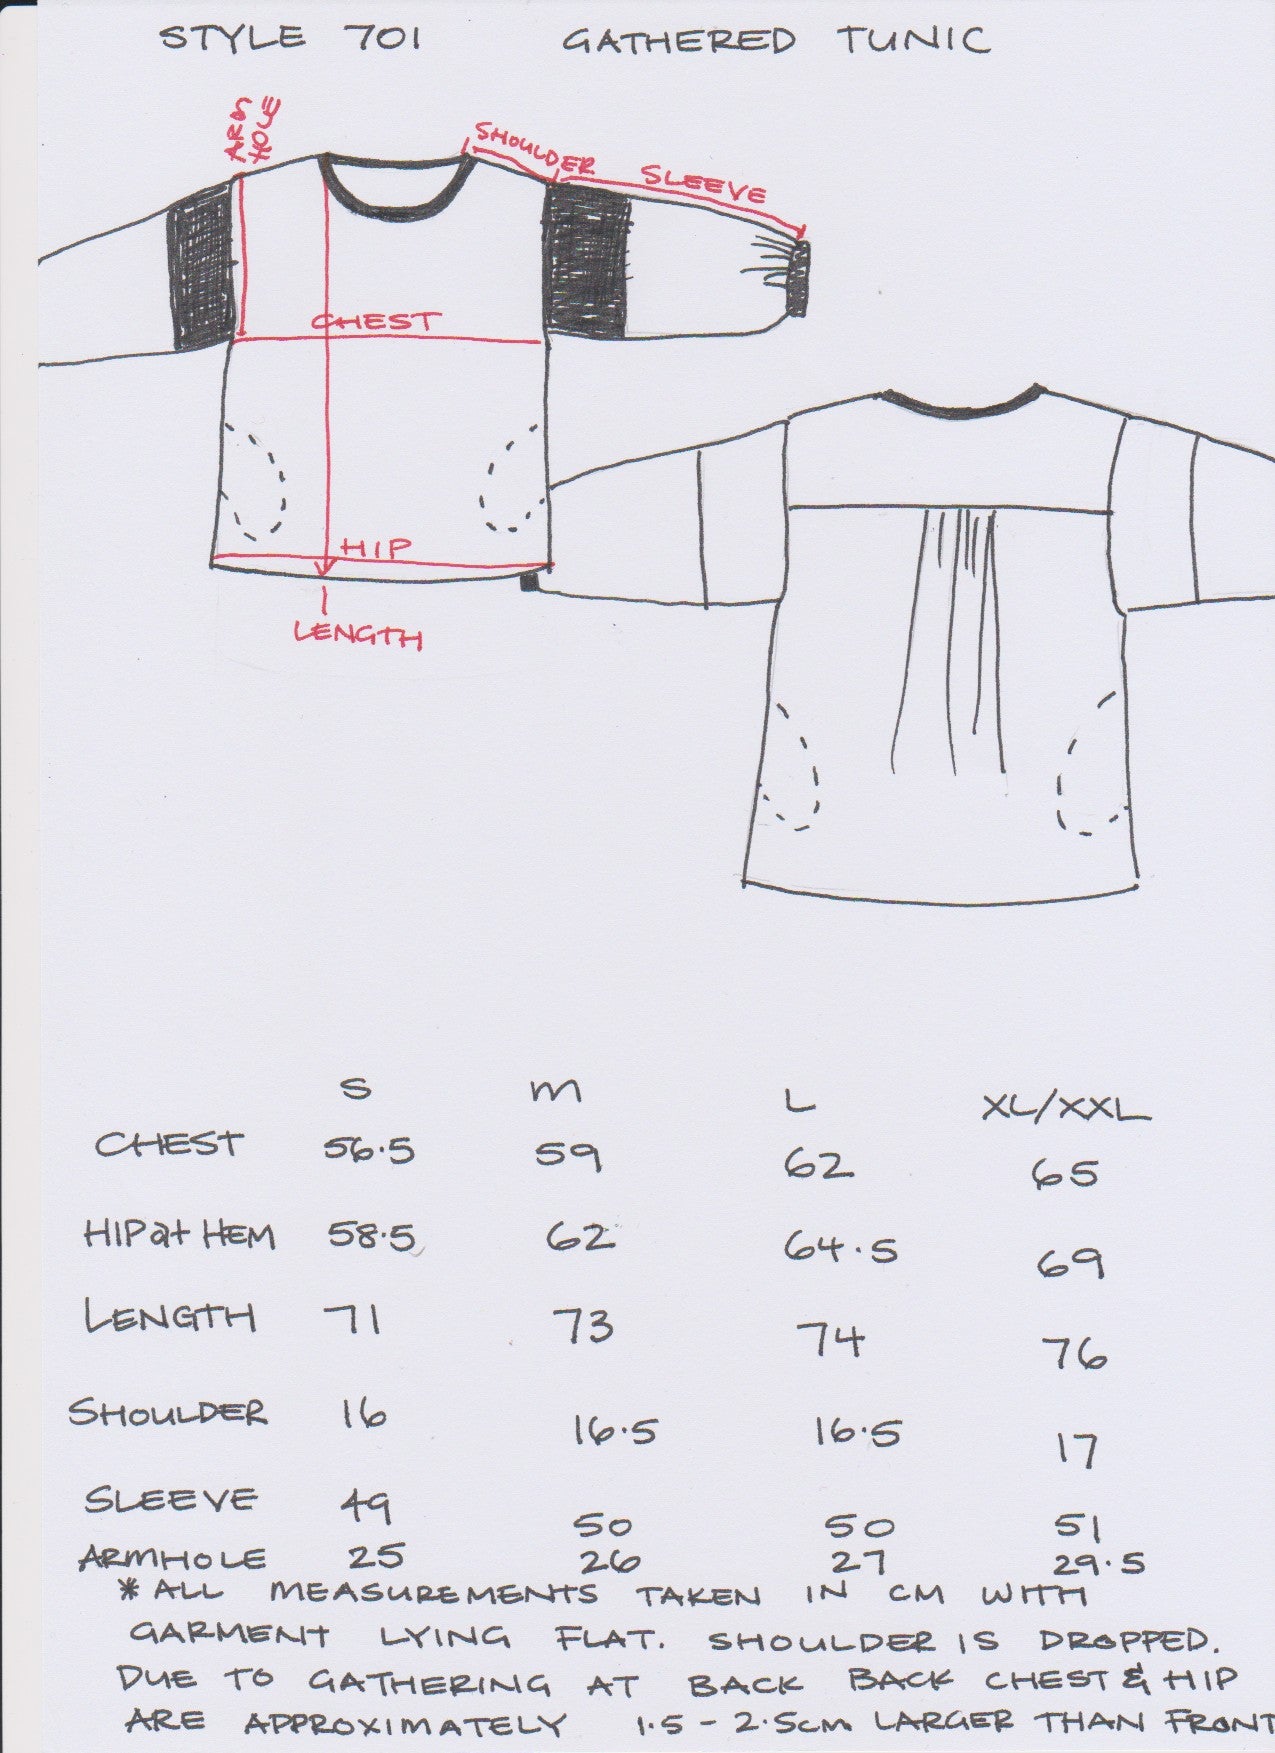 STYLE 701 GATHERED TUNIC
ARM HOLE
SHOULDER
SLEEVE
CHEST
HIP
LENGTH
S M L XL/XXL
CHEST 56.5 59 62 65
HIP at HEM 58.5 62 64.5 69
LENGTH 71 73 74 76
SHOULDER 16 16.5 16.5 17
SLEEVE 49 50 50 51
ARMHOLE 25 26 27 29.5
* ALL MEASUREMENTS TAKEN IN CM WITH
GARMENT LYING FLAT. SHOULDER IS DROPPED.
DUE TO GATHERING AT BACK BACK CHEST & HIP
ARE APPROXIMATELY 1.5 - 2.5cm LARGER THAN FRONT